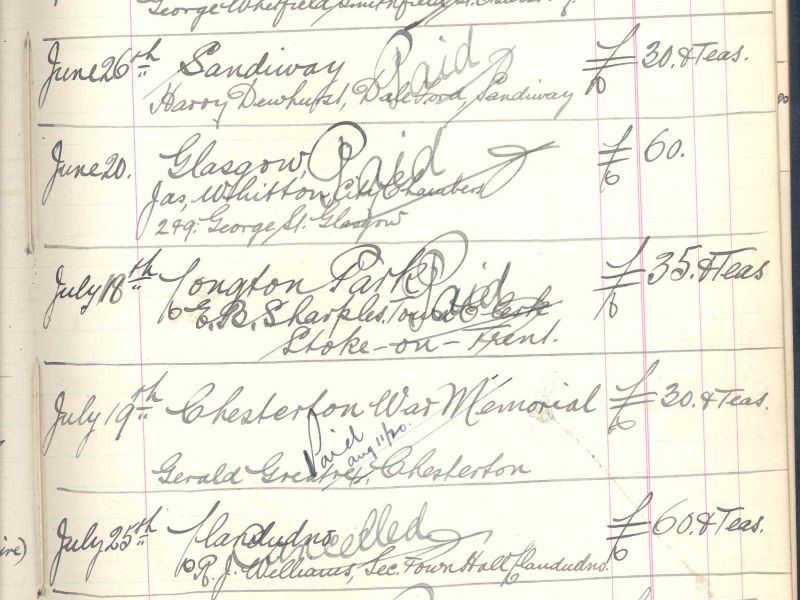 George Whitfield, Smithfield St.
June 26th Sandiway Paid £30. & Teas.
Harry Dewhurst, Daleford, Sandiway
June 20. Glasgow, Paid £60.
Jas, Whitton, City Chambers
249. George St. Glasgow
July 18th Longton Park Paid £35. & Teas
E.B. Sharples. Town Clerk
Stoke-on-Trent.
July 19th Chesterton War Memorial £30. & Teas.
Paid Aug 11/20.
Gerald Greaves, Chesterton
ire)
July 25th Llandudno Cancelled £60. & Teas.
R. J. Williams, Sec. Town Hall Llandudno.